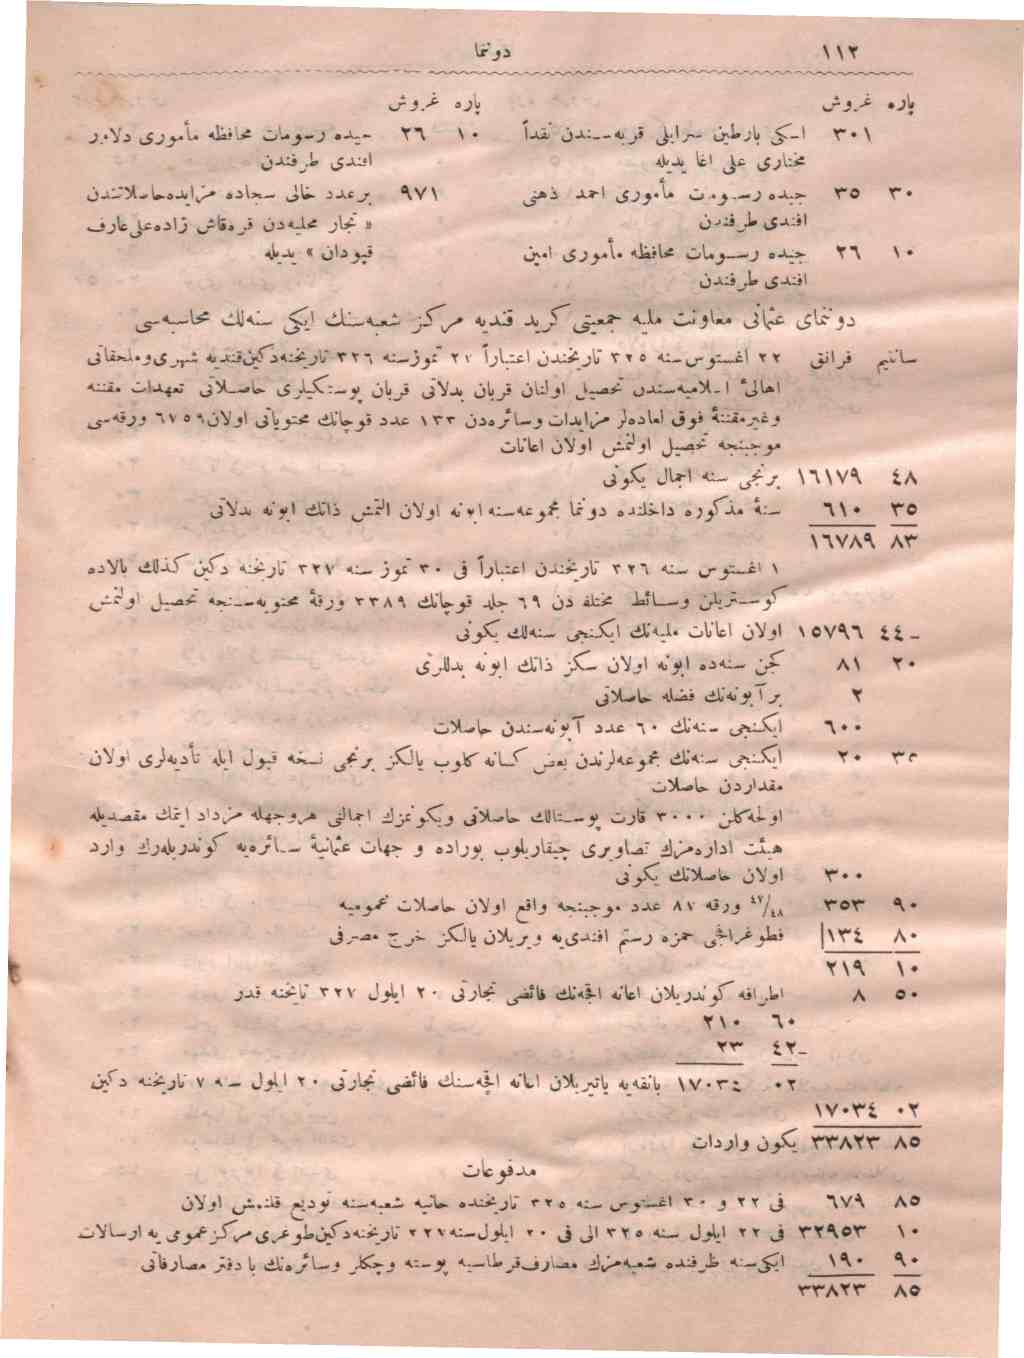 ١١٢
دوننما
پاره غروش
٣٠١ ايكى بارطين سرابلى قريه سندن نقداً
مختارى على اغا يديله
٣٠ ٣٥ جيده رسومات مأمورى احمد ذهنى
افندى طرفندن
١٠ ٢٦ جيده رسومات محافظه مأمورى امين
افندى طرفندن
پاره غروش
١٠ ٢٦ جيده رسومات محافظه مأمورى دلاور
افندى طرفندن
٩٧١ بر عدد خالى سجاده مزايده حاصلاتندن
« تجار محليه دن قره قاش زاده على عارف
قپودان » يديله
دوننماى عثمانى معاونت مليه جمعيتى كريد قنديه مركز شعبه سنك ايكى سنه لك محاسبه سى
سانتيم فرانق ٢٢ اغستوس سنه ٣٢٥ تاريخندن اعتباراً ٢٧ تموز سنه ٣٢٦ تاريخنه دكين قنديه شهرى وملحقاتى
اهالئ اسلاميه سندن تحصيل اولنان قربان بدلاتى قربان پوستكيلرى حاصلاتى تعهدات مقننه
وغير مقننه فوق العاده لر مزايدات وسائره دن ١٣٣ عدد قوچانك محتوياتى اولان ٦٧٥٩ ورقه سى
موجبنجه تحصيل اولنمش اولان اعانات
٤٨ ١٦١٧٩ برنجى سنه اجمال يكونى
٣٥ ٦١٠ سنهٔ مذكوره داخلنده دوننما مجموعه سنه ابونه اولان التمش ذاتك ابونه بدلاتى
٨٣ ١٦٧٨٩
١ اغستوس سنه ٣٢٦ تاريخندن اعتباراً فى ٣٠ تموز سنه ٣٢٧ تاريخنه دكين كذلك بالاده
كوستريلن وسائط مختلفه دن ٦٩ جلد قوچانك ٣٣٨٩ ورقهٔ محتويه سنجه تحصيل اولنمش
٤٤ ١٥٧٩٦ اولان اعانات مليه نك ايكنجى سنه لك يكونى
٢٠ ٨١ كچن سنه ده ابونه اولان سكز ذاتك ابونه بدللرى
٢ بر آبونه نك فضله حاصلاتى
٦٠٠ ايكنجى سنه نك ٦٠ عدد آبونه سندن حاصلات
٣٥ ٢٠ ايكنجى سنه نك مجموعه لرندن بعض كسانه كلوب يالكز برنجى نسخه قبول ايله تأديه لرى اولان
مقداردن حاصلات
اولجه كلن ٣٠٠٠ قارت پوستالك حاصلاتى ويكونمزك اجمالنى هر وجهله مزداد ايتمك مقصديله
هيئت اداره مزك تصاويرى چيقاريلوب بوراده و جهات عثمانيهٔ سائره يه كوندريله رك وارد
٣٠٠ اولان حاصلاتك يكونى
٩٠ ٣٥٣ ٤٧/٤٨ ورقه ٨٧ عدد موجبنجه واقع اولان حاصلات عموميه
٨٠ ١٣٤ فطوغرافجى حمزه رستم افندى يه ويريلان يالكز خرج مصرفى
١٠ ٢١٩
٥٠ ٨ اطرافه كوندريلان اعانه اقچه نك فائضى تجارتى ٢٠ ايلول ٣٢٧ تاريخنه قدر
٦٠ ٢١٠
٤٢ ٢٣
٠٢ ١٧٠٣٤ بانقه يه ياتيريلان اعانه اقچه سنك فائضى تجارتى ٢٠ ايلول سنه ٧ تاريخنه دكين
٠٢ ١٧٠٣٤
٨٥ ٣٣٨٢٣ يكون واردات
مدفوعات
٨٥ ٦٧٩ فى ٢٢ و ٣٠ اغستوس سنه ٣٢٥ تاريخنده حانيه شعبه سنه توديع قلنمش اولان
١٠ ٣٢٩٥٣ فى ٢٢ ايلول سنه ٣٢٥ الى فى ٢٠ ايلول سنه ٢٢٧ تاريخنه دكين طوغرى مركز عمومى يه ارسالات
٩٠ ١٩٠ ايكى سنه ظرفنده شعبه مزك مصارف قرطاسيه پوسته وچكلر وسائره نك با دفتر مصارفاتى
٨٥ ٣٣٨٢٣